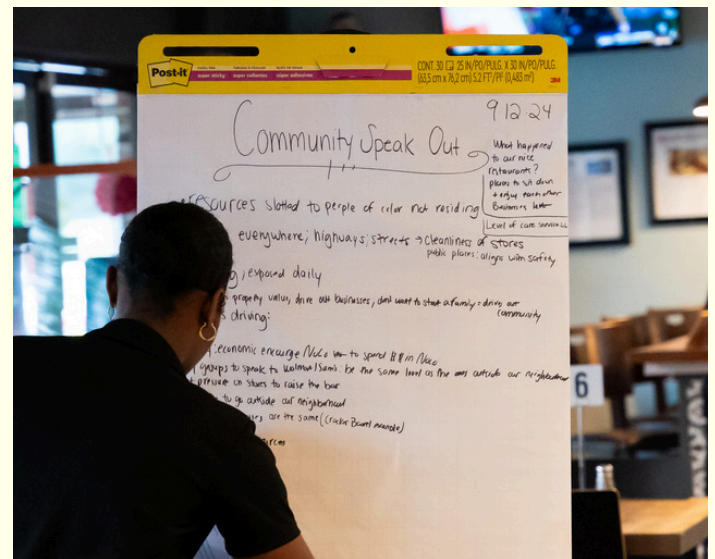 Post-it
super sticky super collantes super adhesivas
CONT. 30 25 IN/PO/PULG. X 30 IN/PO/PULG.
(63,5 cm x 76,2 cm) 5.2 FT²/PI² (0,483 m²)
3M
9 12 24
Community Speak Out
What happened
to our nice
restaurants?
places to sit down
+ enjoy each other
Businesses left
Level of care service
resources slotted to people of color not residing
everywhere; highways; streets → cleanliness of stores
public places: aligns with safety
, exposed daily
property value, drive out businesses, dont want to start a family = drives out
community
driving:
economic encourge NoCo to spend $$ in NoCo
groups to speak to Walmart/Sams: be the same level as the ones outside our neighborhood
pressure on stores to raise the bar
to go outside our neighborhood
are the same (Cracker Barrel example)
6